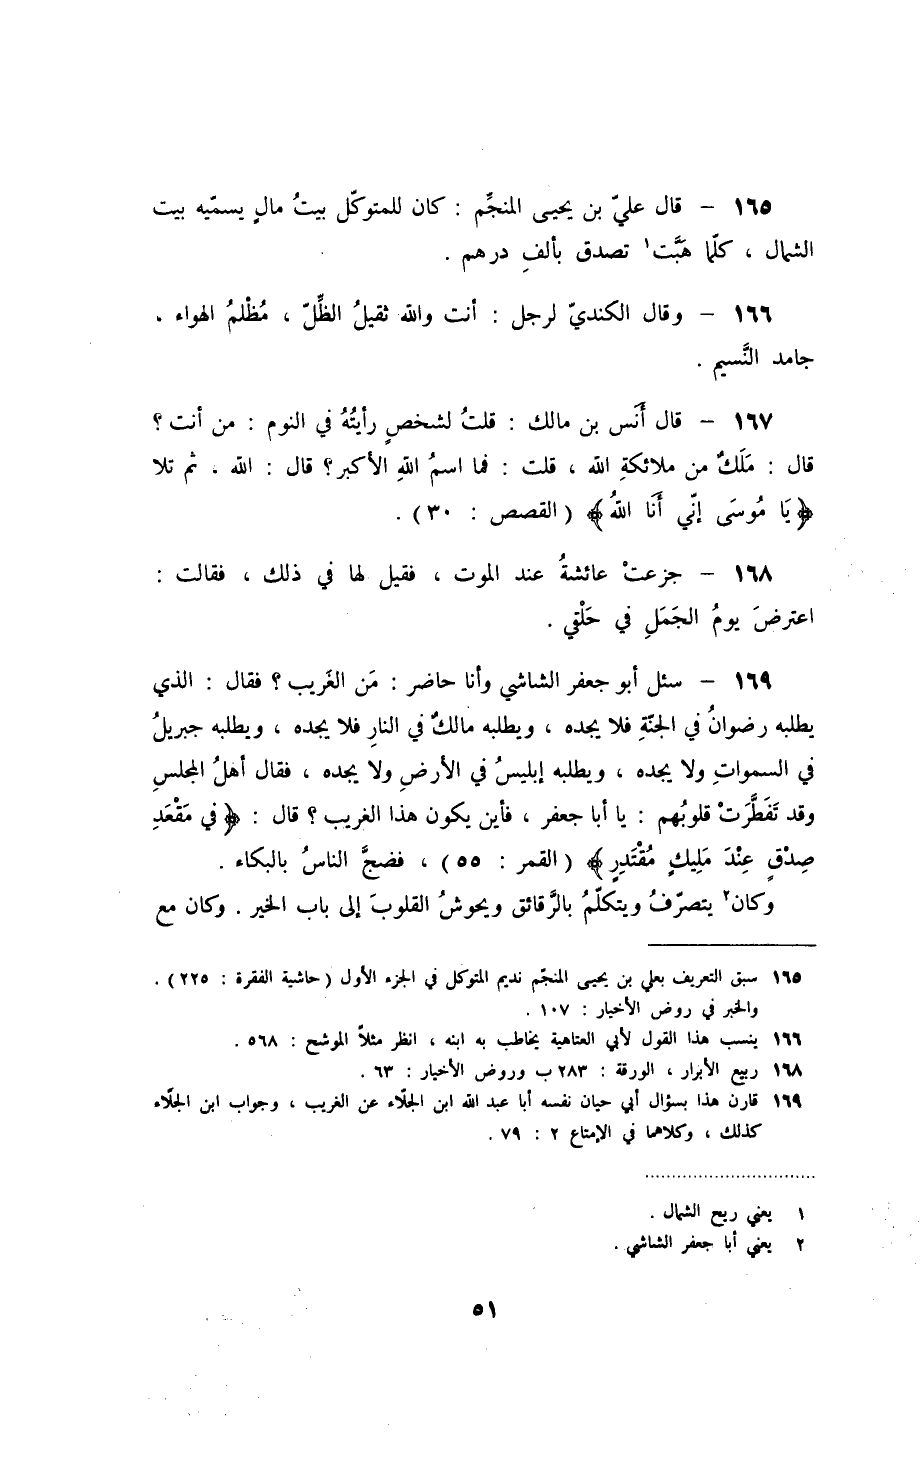 ١٦٥ – قال عليّ بن يحيى المنجِّم : كان للمتوكّل بيتُ مالٍ يسمّيه بيت
الشمال ، كلّما هَبَّت١ تصدق بألفِ درهم .
١٦٦ – وقال الكنديّ لرجل : أنت والله ثقيلُ الظِّلّ ، مُظْلمُ الهواء .
جامد النَّسيم .
١٦٧ – قال أَنَس بن مالك : قلتُ لشخصٍ رأيتُهُ في النوم : من أنت ؟
قال : مَلَكٌ من ملائكةِ الله ، قلت : فما اسمُ اللهِ الأكبر ؟ قال : الله . ثم تلا
﴿يَا مُوسَى إنّي أَنَا اللهُ﴾ (القصص : ٣٠) .
١٦٨ – جزعتْ عائشةُ عند الموت ، فقيل لها في ذلك ، فقالت :
اعترضَ يومُ الجَمَلِ في حَلْقي .
١٦٩ – سئل أبو جعفر الشاشي وأنا حاضر : مَن الغَريب ؟ فقال : الذي
يطلبه رضوانُ في الجنّةِ فلا يجده ، ويطلبه مالكٌ في النارِ فلا يجده ، ويطلبه جبريلُ
في السمواتِ ولا يجده ، ويطلبه إبليسُ في الأرضِ ولا يجده ، فقال أهلُ المجلسِ
وقد تَفَطَّرَتْ قلوبُهم : يا أبا جعفر ، فأين يكون هذا الغريب ؟ قال : ﴿في مَقْعَدِ
صِدْقٍ عِنْدَ مَلِيكٍ مُقْتَدِرٍ﴾ (القمر : ٥٥) ، فضجَّ الناسُ بالبكاء .
وكان٢ يتصرّفُ ويتكلّمُ بالرَّقائق ويحوشُ القلوبَ إلى باب الخير . وكان مع
١٦٥ سبق التعريف بعلي بن يحيى المنجّم نديم المتوكل في الجزء الأول (حاشية الفقرة : ٢٢٥) .
والخبر في روض الأخيار : ١٠٧ .
١٦٦ ينسب هذا القول لأبي العتاهية يخاطب به ابنه ، انظر مثلاً الموشح : ٥٦٨ .
١٦٨ ربيع الأبرار ، الورقة : ٢٨٣ ب وروض الأخيار : ٦٣ .
١٦٩ قارن هذا بسؤال أبي حيان نفسه أبا عبد الله ابن الجلّاء عن الغريب ، وجواب ابن الجلّاء
كذلك ، وكلاهما في الإمتاع ٢ : ٧٩ .
١ يعني ريح الشمال .
٢ يعني أبا جعفر الشاشي .
٥١